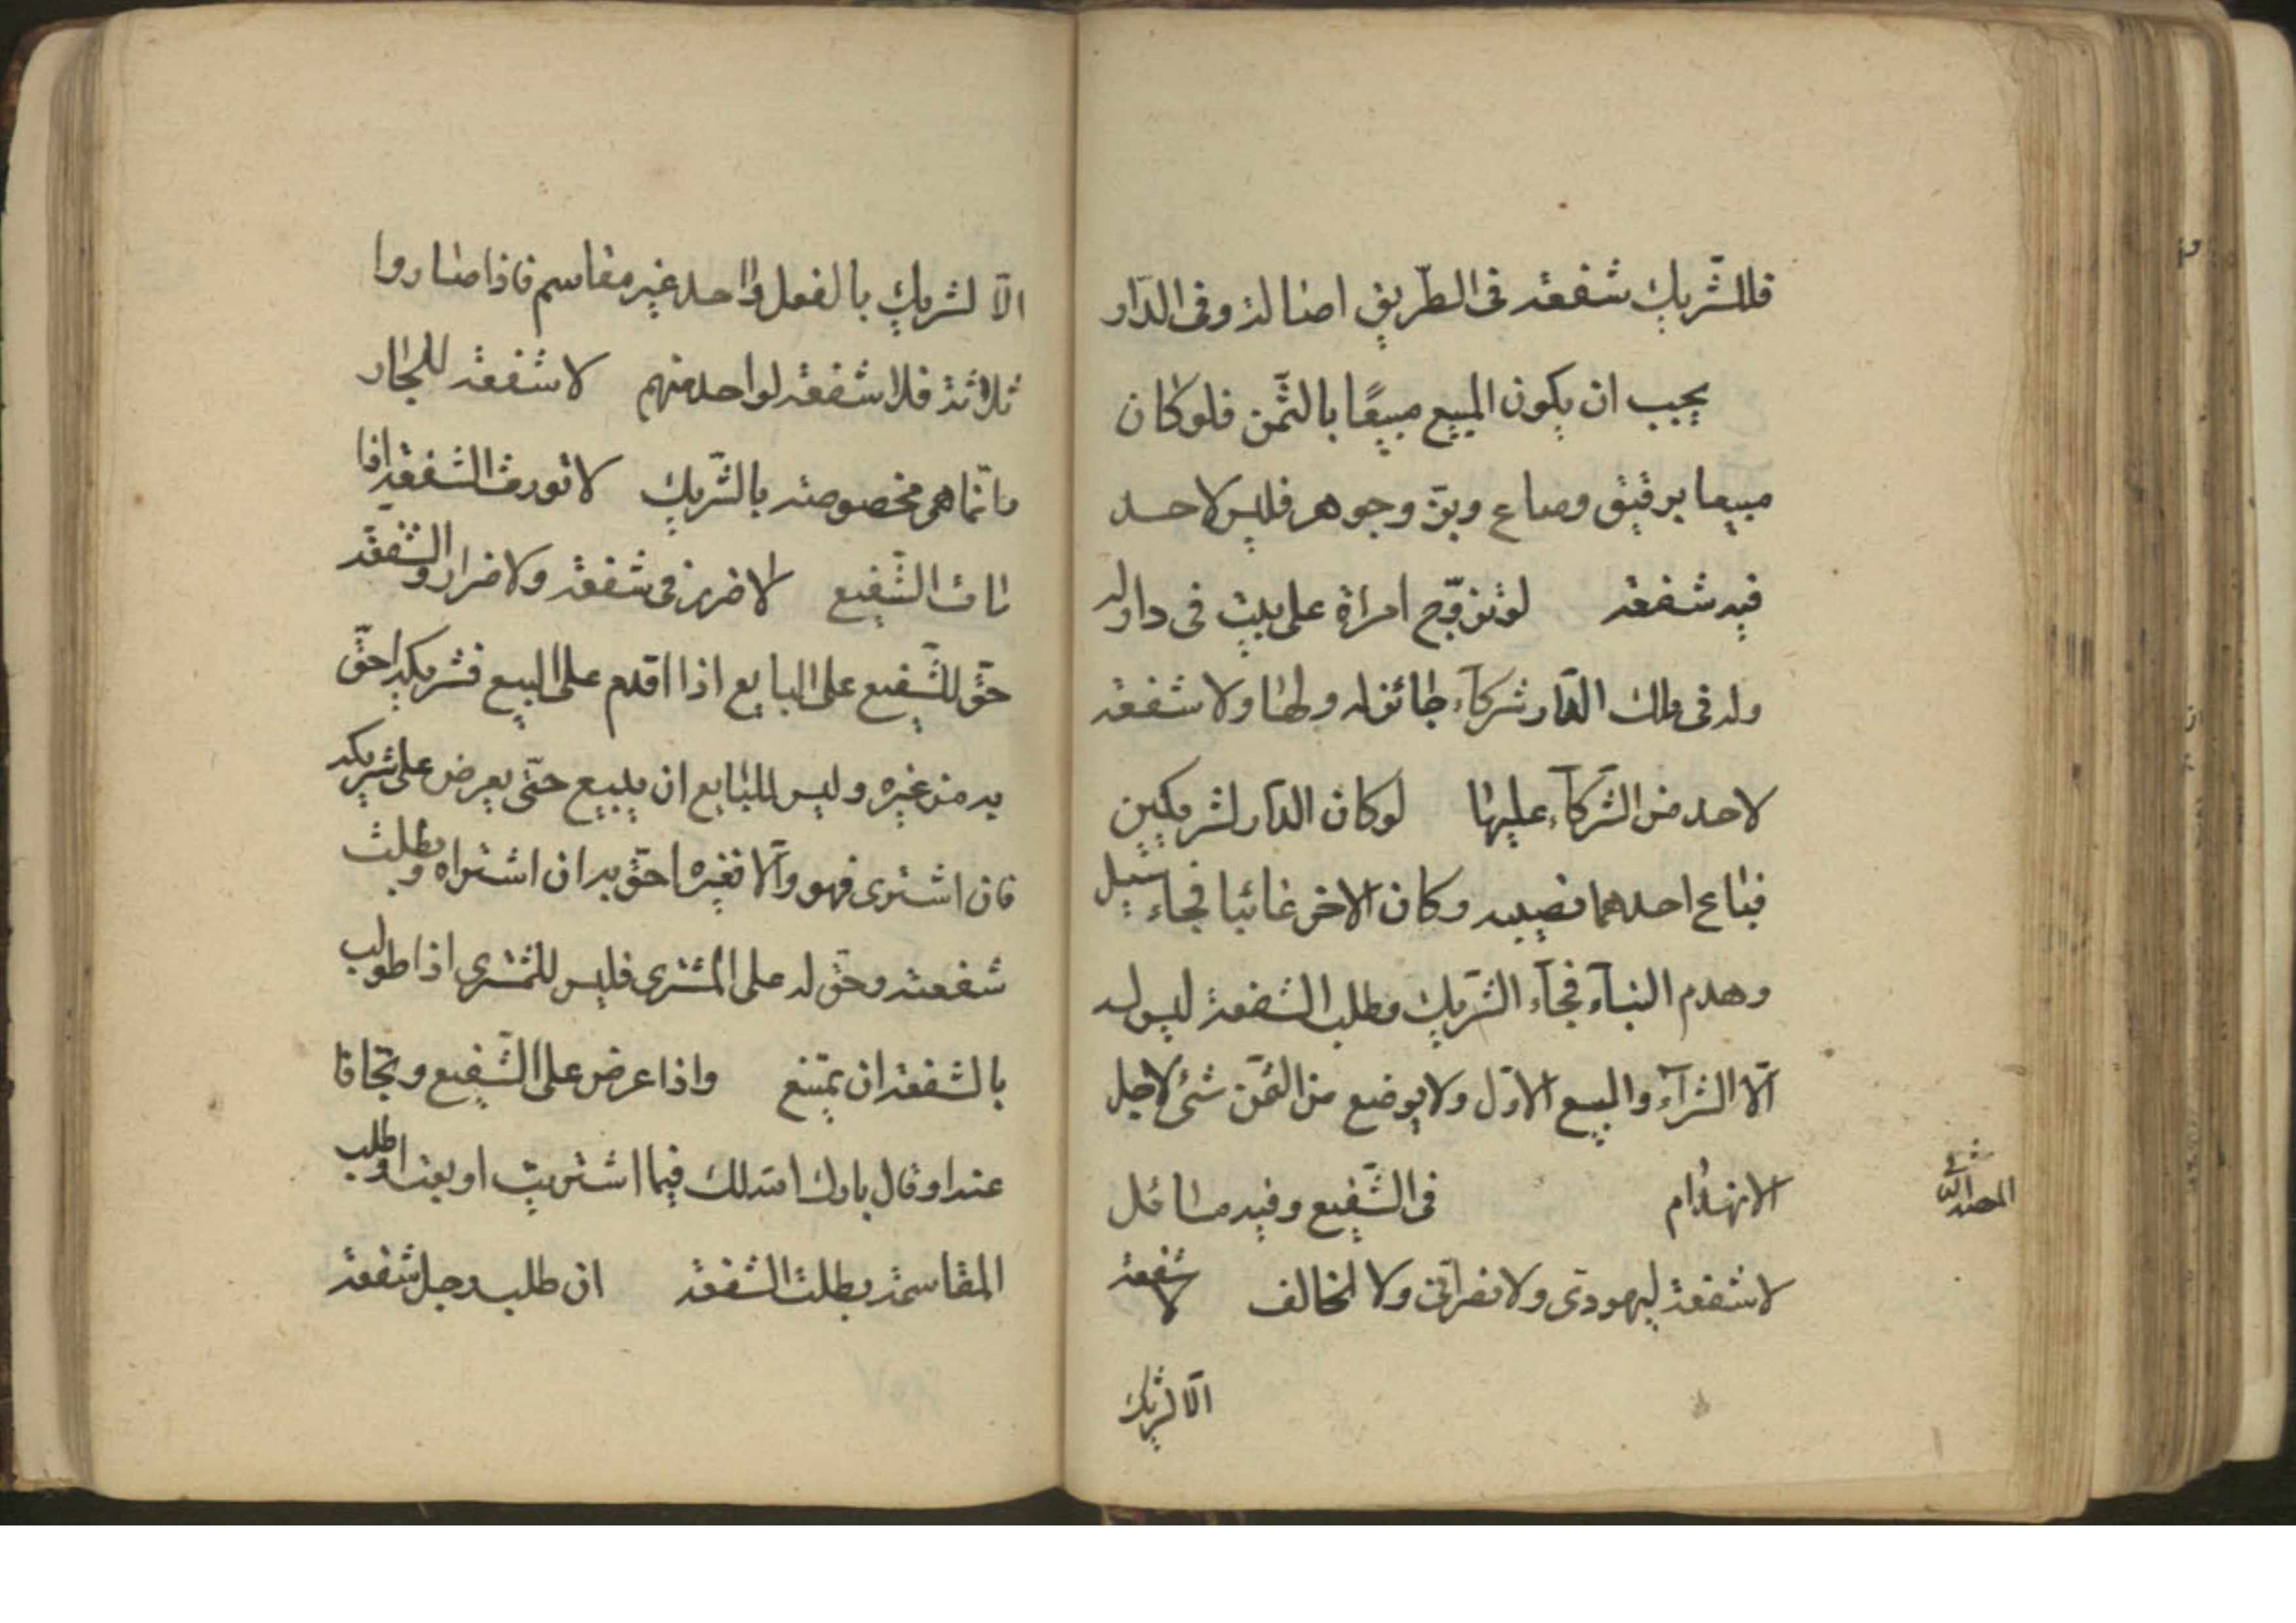 فللشّريك شفعة فى الطّريق اصالة وفى الدّار
يجب ان يكون المبيع مبيعًا بالثّمن فلو كان
مبيعا برقيق ومتاع وبزّ وجوهر فليس لاحد
فيه شفعة لو تزوّج امراة على بيت فى دار له
وله فى تلك الدّار شركآء جائز له ولها ولا شفعة
لاحد من الشّركآء عليها لو كان الدّار لشريكين
فباع احدهما نصيبه وكان الاخر غائبا فجاء سيل
وهدم البنآء فجآء الشّريك وطلب الشفعة ليس له
الّا الشرآء والبيع الاوّل ولا يوضع من الثّمن شئ لاجل
الانهدام فى الشّفيع وفيه مسائل
المقصد الثانى
لا شفعة ليهودى ولا نصرانى ولا لمخالف لا شفعة
الّا لشريك
الّا لشريك بالفعل واحد غير مقاسم فاذا صاروا
ثلاثة فلا شفعة لواحد منهم لا شفعة للجار
فانّما هى مخصوصة بالشّريك لا تورث الشفعة اذا
مات الشّفيع لا ضرر فى شفعة ولا ضرار والشفعة
حقّ للشّفيع على البايع اذا اقدم على البيع فشريكه احقّ
به من غيره وليس للبايع ان يبيع حتّى يعرض على شريكه
فان اشترى فهو والّا فغيره احقّ به ان اشتراه وبطلت
شفعته وحقّ له على المشترى فليس للمشترى اذا طولب
بالشفعة ان يمتنع واذا عرض على الشّفيع وتجافا
عنه او قال بارك الله لك فيما اشتريت او بعت او طلب
المقاسمة بطلت الشفعة ان طلب رجل شفعة